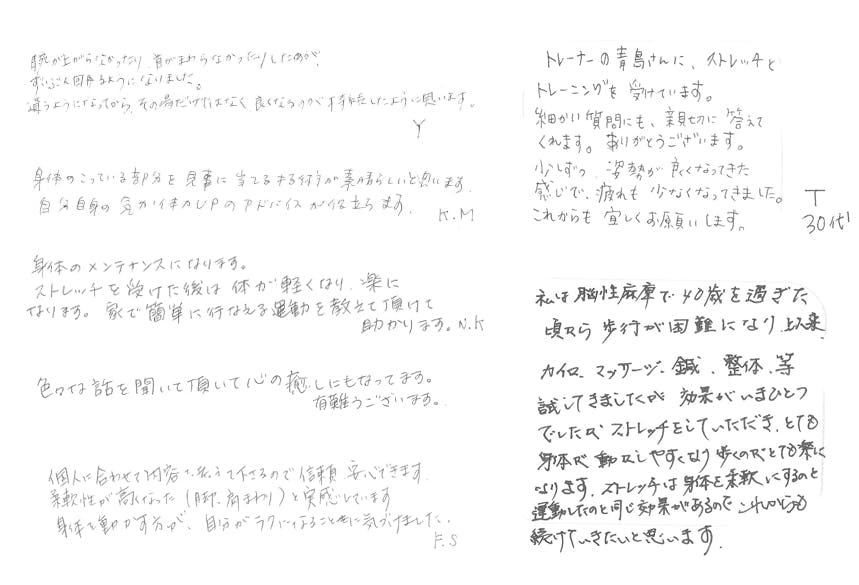 腕が上がらなかったり、首がまわらなかったりしたのが、
ずいぶん回るようになりました。
通うようになってから、その場だけではなく良くなるのが持続したように思います。
Y
身体のこっている部分を見事に当てる
が素晴らしいと思います。
自分自身の
体力UPのアドバイスが役立ちます。
K.M
身体のメンテナンスになります。
ストレッチを受けた後は体が軽くなり、楽に
なります。家で簡単に行なえる運動を教えて頂けて
助かります。N.K
色々な話を聞いて頂いて心の癒しにもなってます。
有難うございます。
個人に合わせて内容を考えて下さるので信頼、安心できます。
柔軟性が高くなった(脚、肩まわり)と実感しています
身体を動かす方が、自分がラクになることに気づけました。
F.S
トレーナーの青島さんに、ストレッチと
トレーニングを受けています。
細かい質問にも、親切に答えて
くれます。ありがとうございます。
少しずつ、姿勢が良くなってきた
感じで、疲れも少なくなってきました。
これからも宜しくお願いします。
T
30代
私は脳性麻痺で40歳を過ぎた
頃から歩行が困難になり、以来、
カイロ、マッサージ、鍼、整体、等
試してきましたが効果がいまひとつ
でしたが ストレッチをしていただき、とても
身体が動かしやすくなり歩くのがとても楽に
なります。ストレッチは身体を柔軟にするのと
運動したのと同じ効果があるので これからも
続けていきたいと思います。